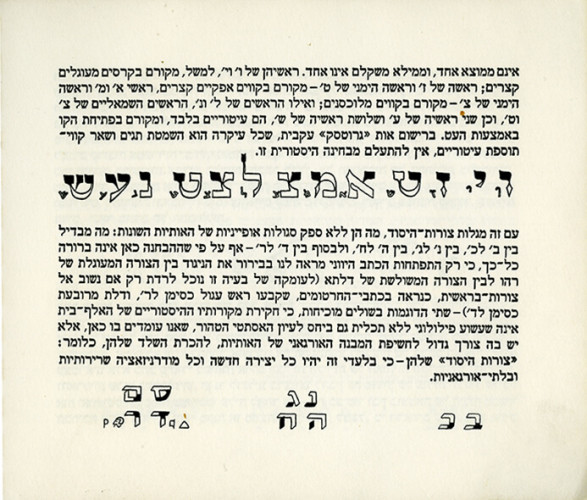 אינם ממוצא אחד, וממילא משקלם אינו אחד. ראשיהן של ו׳ וי׳, למשל, מקורם בקרסים מעוגלים
קצרים; ראשה של ז׳ וראשה הימני של ט׳ – מקורם בקווים אפקיים קצרים, ראשי א׳ ומ׳ וראשה
הימני של צ׳ – מקורם בקווים מלוכסנים; ואילו הראשים של ל׳ ונ׳, הראשים השמאליים של צ׳
וט׳, וכן שני ראשיה של ע׳ ושלושת ראשיה של ש׳, הם עיטוריים בלבד, ומקורם בפתיחת הקו
באמצעות העט. ברישום אות «גרוטסק» עקבית, שכל עיקרה הוא השמטת תגים ושאר קווי־
תוספת עיטוריים, אין להתעלם מבחינה היסטורית זו.
ו י ז ט א מ צ ל צ ט נ ע ש
עם זה מגלות צורות־היסוד, מה הן ללא ספק סגולות אופייניות של האותיות השונות: מה מבדיל
בין ב׳ לכ׳, בין נ׳ לג׳, בין ה׳ לח׳, ולבסוף בין ד׳ לר׳ – אף על פי שההבחנה כאן אינה ברורה
כל־כך, כי רק התפתחות הכתב היווני מראה לנו בבירור את הניגוד בין הצורה המעוגלת של
רהו לבין הצורה המשולשת של דלתא (לעומקה של בעיה זו נוכל לרדת רק אם נשוב אל
צורות־בראשית, כנראה בכתבי־החרטומים, שקבעו ראש עגול כסימן לר׳, ודלת מרובעת
כסימן לד׳) – שתי הדוגמות בשולים מוכיחות, כי חקירת מקורותיו ההיסטוריים של האלף־בית
אינה שעשוע פילולוגי ללא תכלית גם ביחס לעיון האסתטי הטהור, שאנו עומדים בו כאן, אלא
יש בה צורך גדול לחשיפת המבנה האורגאני של האותיות, להכרת השלד שלהן, כלומר:
«צורות היסוד» שלהן – כי בלעדי זה יהיו כל יצירה חדשה וכל מודרניזאציה שרירותיות
ובלתי־אורגאניות.
ס ם
נ ג
ב כ
ה ח
ד ר